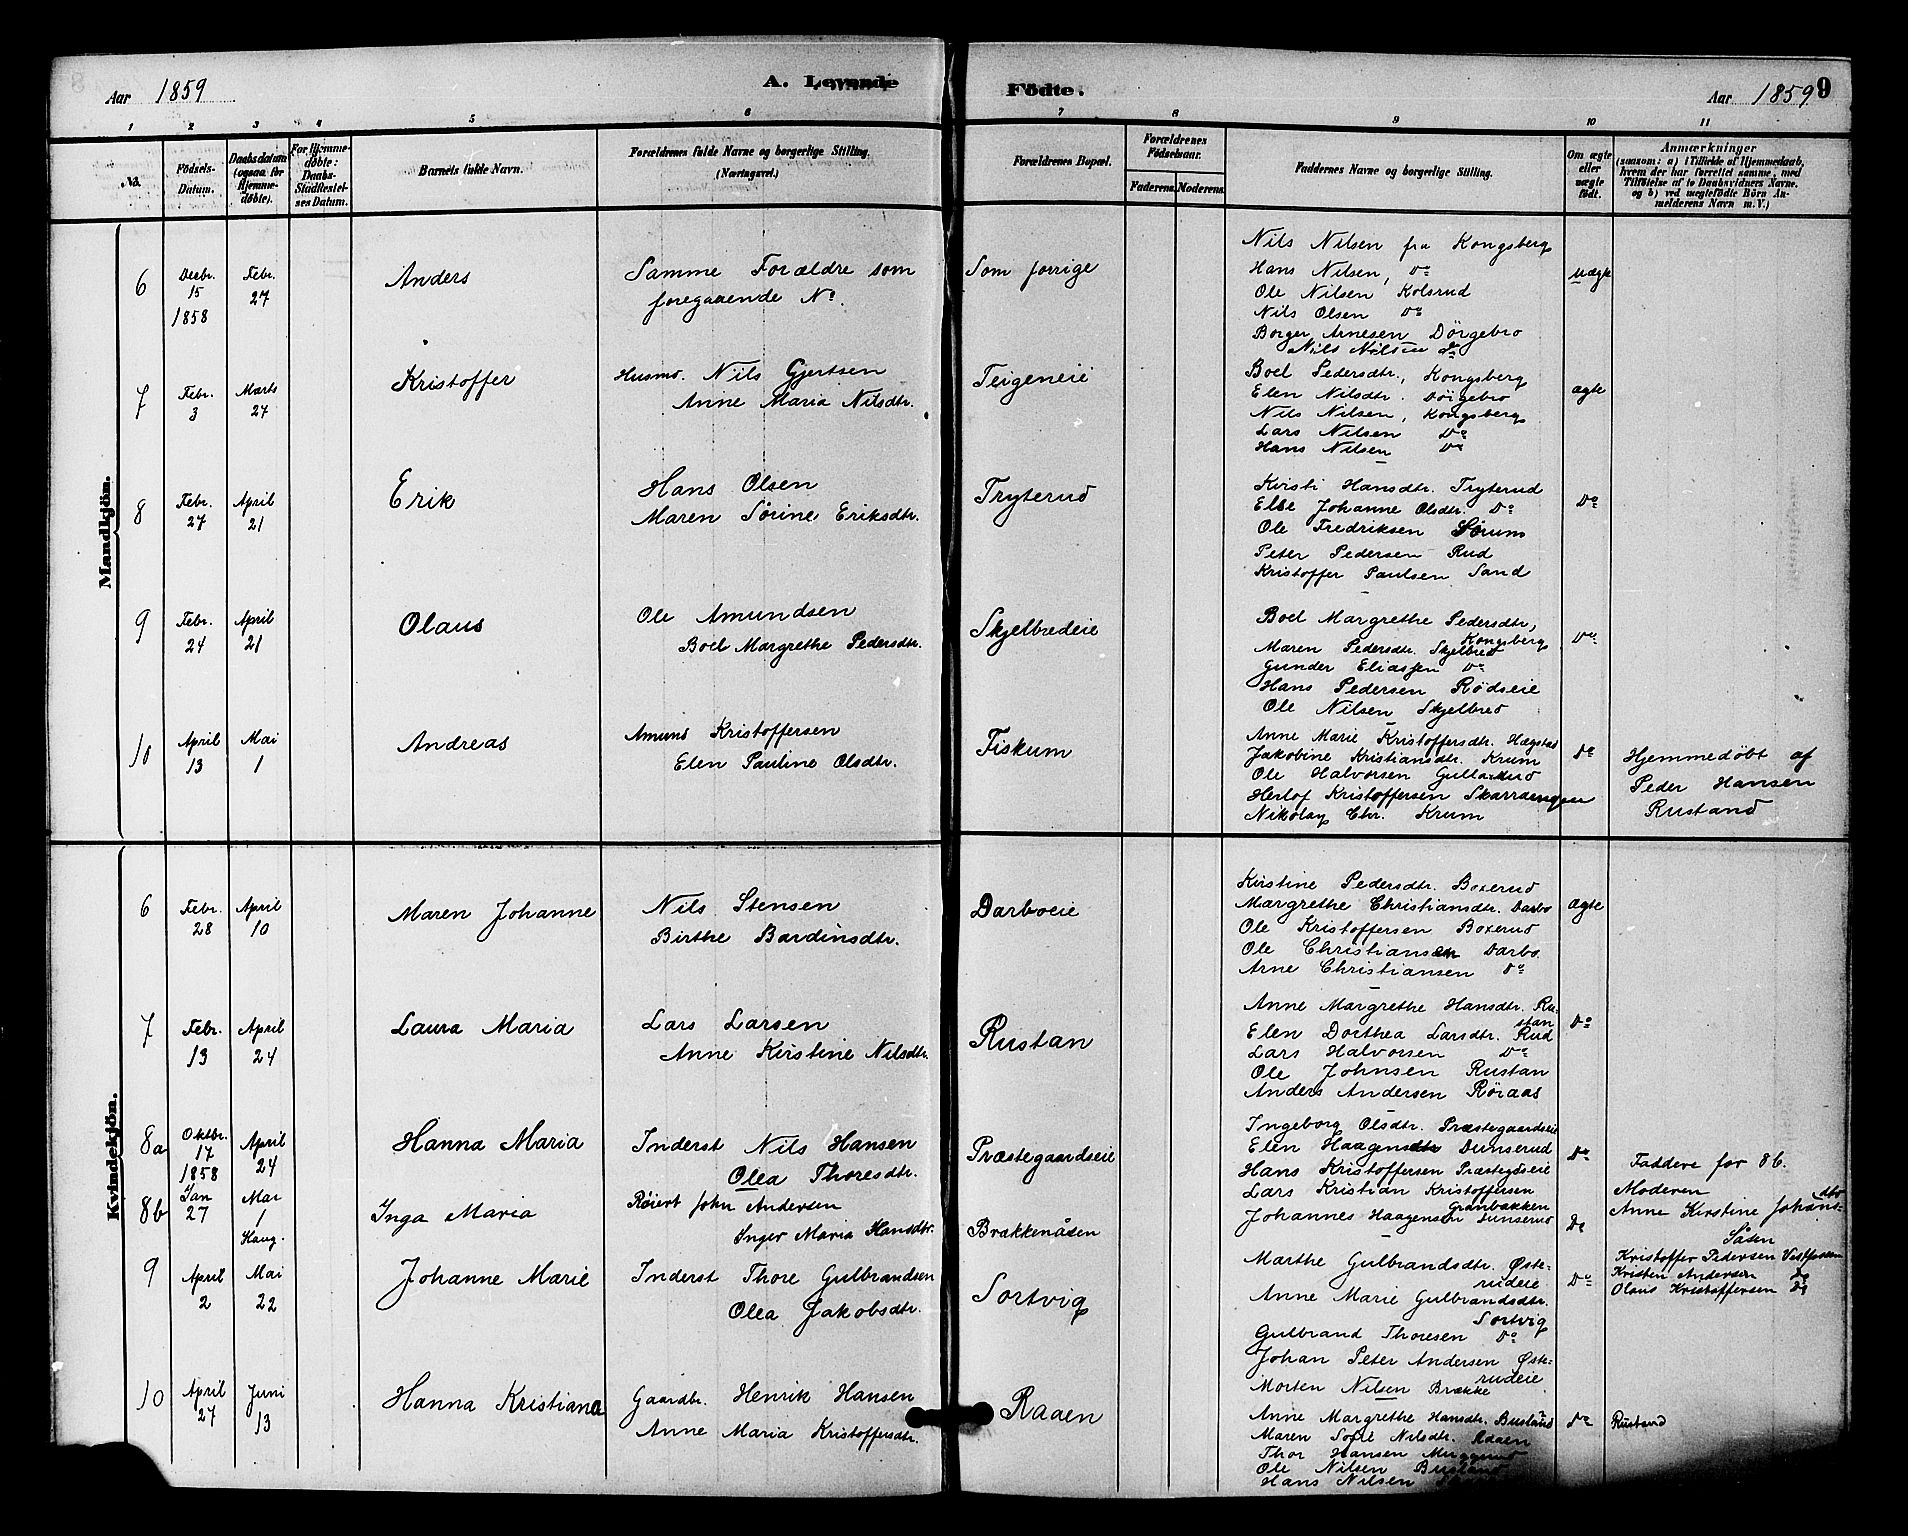 Aar 1859
A. Levende
Fødte.
Aar 1859
9
1 2 3 4 5 6 7 8 9 10 11
No.
Fødsels-Datum.
Daabsdatum (ogsaa for Hjemmedøbte).
For Hjemmedøbte: Daabs-Stadfæstelses Datum.
Barnets fulde Navn.
Forældrenes fulde Navne og borgerlige Stilling. (Næringsvei.)
Forældrenes Bopæl.
Forældrenes Fødselsaar.
Faderens. Moderens.
Faddernes Navne og borgerlige Stilling.
Om ægte eller uægte født.
Anmærkninger
(saasom: a) i Tilfælde af Hjemmedaab,
hvem der har forrettet samme, med
Tilføielse af to Daabsvidners Navne.
og b) ved uægtefødte Børn An-
melderens Navn m. V.)
Mandkjön.
6
Decbr. 15 1858
Febr. 27
Anders
Samme Forældre som
foregaaende No.
Som forrige
Nils Nilsen fra Kongsberg
Hans Nilsen, Do
Ole Nilsen Kolsrud
Nils Olsen Do
Borger Arnesen Dörgebro
Nils Nilsen do
uægte
7
Febr. 3
Marts 27
Kristoffer
Husmd. Nils Gjertsen
Anne Maria Nilsdtr.
Teigeneie
Boel Pedersdtr., Kongsberg
Elen Nilsdtr. Dörgebro
Nils Nilsen, Kongsberg
Lars Nilsen Do
Hans Nilsen Do
ægte
8
Febr. 27
April 21
Erik
Hans Olsen
Maren Sörine Eriksdtr.
Tryterud
Kristi Hansdtr. Tryterud
Else Johanne Olsdtr. Do
Ole Fredriksen Sörum
Peter Pedersen Rud
Kristoffer Paulsen Sand
Do
9
Febr. 24
April 21
Olaus
Ole Amundsen
Boel Margrethe Pedersdtr.
Skjelbredeie
Boel Margrethe Pedersdtr,
Kongsberg
Maren Pedersdtr. Skjelbred
Gunder Eliassen Do
Hans Pedersen Rødseie
Ole Nilsen Skjelbred
Do
10
April 13
Mai 1
Andreas
Amund Kristoffersen
Elen Pauline Olsdtr.
Fiskum
Anne Marie Kristoffersdtr. Hægstad
Jakobine Kristiansdtr. Krum
Ole Halvorsen
Herlof Kristoffersen
Nikolay Chr. Krum
Do
Hjemmedøbt af
Peder Hansen
Rustand
Kvindekjön.
6
Febr. 28
April 10
Maren Johanne
Nils Stensen
Birthe Bardinsdtr.
Darboeie
Kirstine Pedersdtr. Boxerud
Margrethe Christiansdtr. Darbo
Ole Kristoffersen Boxerud
Ole Christiansen Darbo
Arne Christiansen Do
ægte
7
Febr. 13
April 24
Laura Maria
Lars Larsen
Anne Kirstine Nilsdtr.
Rustan
Anne Margrethe Hansdtr. Ru-
stan
Elen Dorthea Larsdtr. Rud
Lars Halvorsen Do
Ole Johnsen Rustan
Anders Andersen Røraas
Do
8a
Oktbr. 17 1858
April 24
Hanna Maria
Inderst Nils Hansen
Olea Thoresdtr.
Præstegaardseie
Ingeborg Olsdtr. Præstegaardseie
Elen Haagensdtr Dunserud
Hans Kristoffersen Præstegdseie
Lars Kristian Kristoffersen
Granbakken
Johannes Haagensen Dunserud
Do
Faddere for 8b.
8b
Jan 27
Mai 1
Haug.
Inga Maria
Røiert John Andersen
Inger Maria Hansdtr.
Brækkenåsen
Do
Moderen
Anne Kirstine Johans-
dtr
Såsen
Kristoffer Pedersen Vestfossen
Kristen Andersen do
Olaus Kristoffersen do
9
April 2
Mai 22
Johanne Marie
Inderst Thore Gulbrandsen
Olea Jakobsdtr.
Sortvig
Marthe Gulbrandsdtr. Øste-
rudeie
Anne Marie Gulbrandsdtr.
Sortvig
Gulbrand Thoresen Do
Johan Peter Andersen Øste-
rudeie
Morten Nilsen Brække
Do
10
April 27
Juni 13
Hanna Kristiana
Gaardbr. Henrik Hansen
Anne Maria Kristoffersdtr.
Raaen
Anne Margrethe Hansdtr. Busland
Maren Sofie Nilsdtr. Raaen
Thor Hansen Muggerud
Ole Nilsen Busland
Hans Nilsen
Do
Rustand